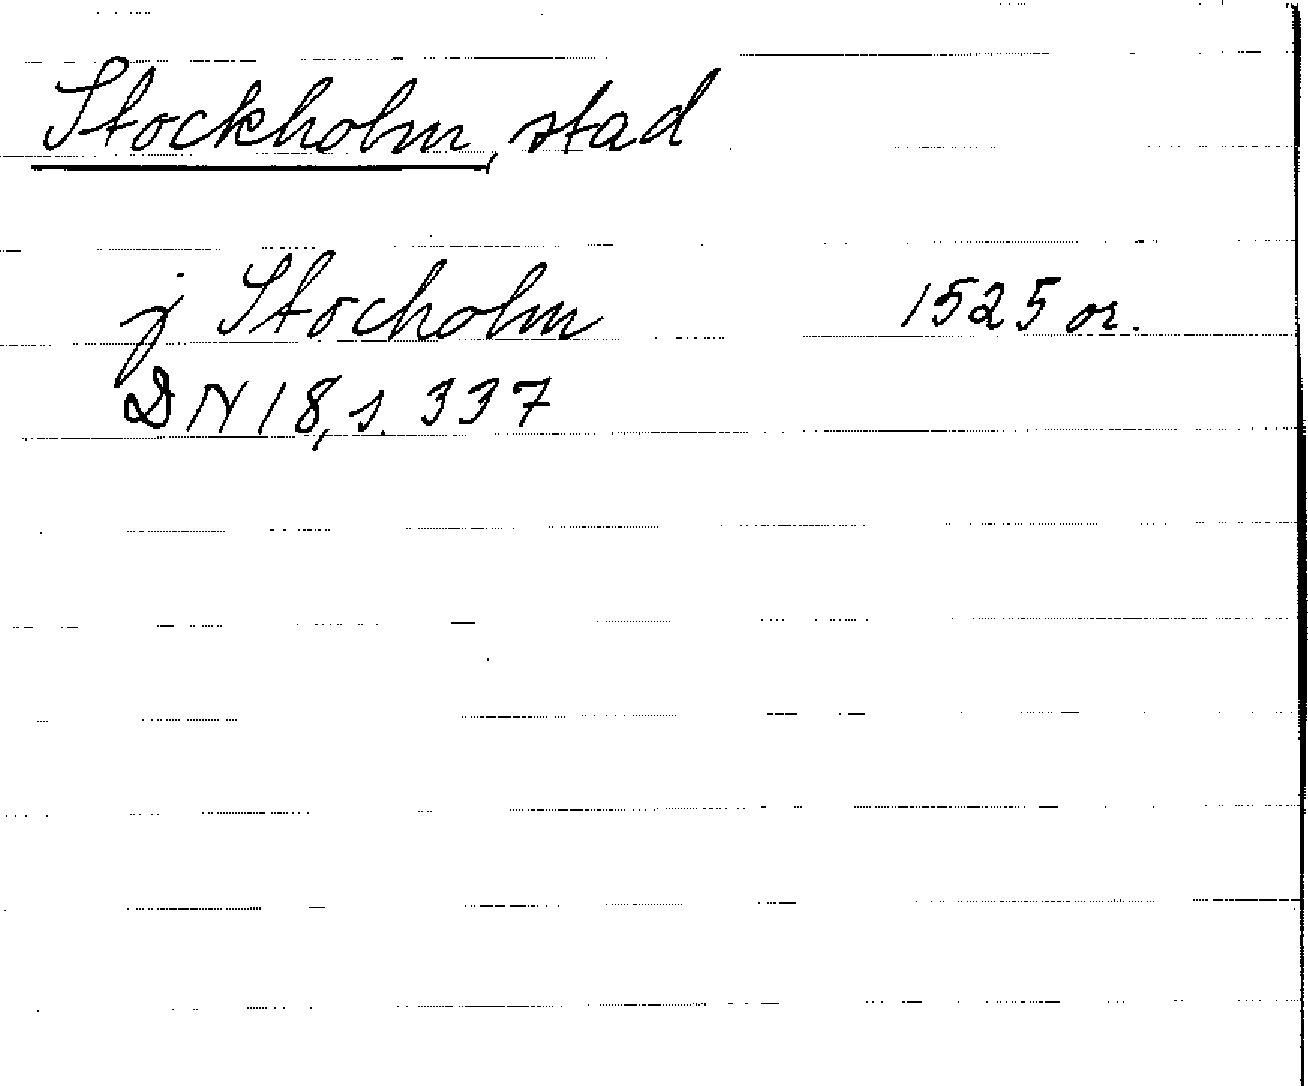 Stockholm, stad
j Stocholm 1525 or.
DN 18, s. 337